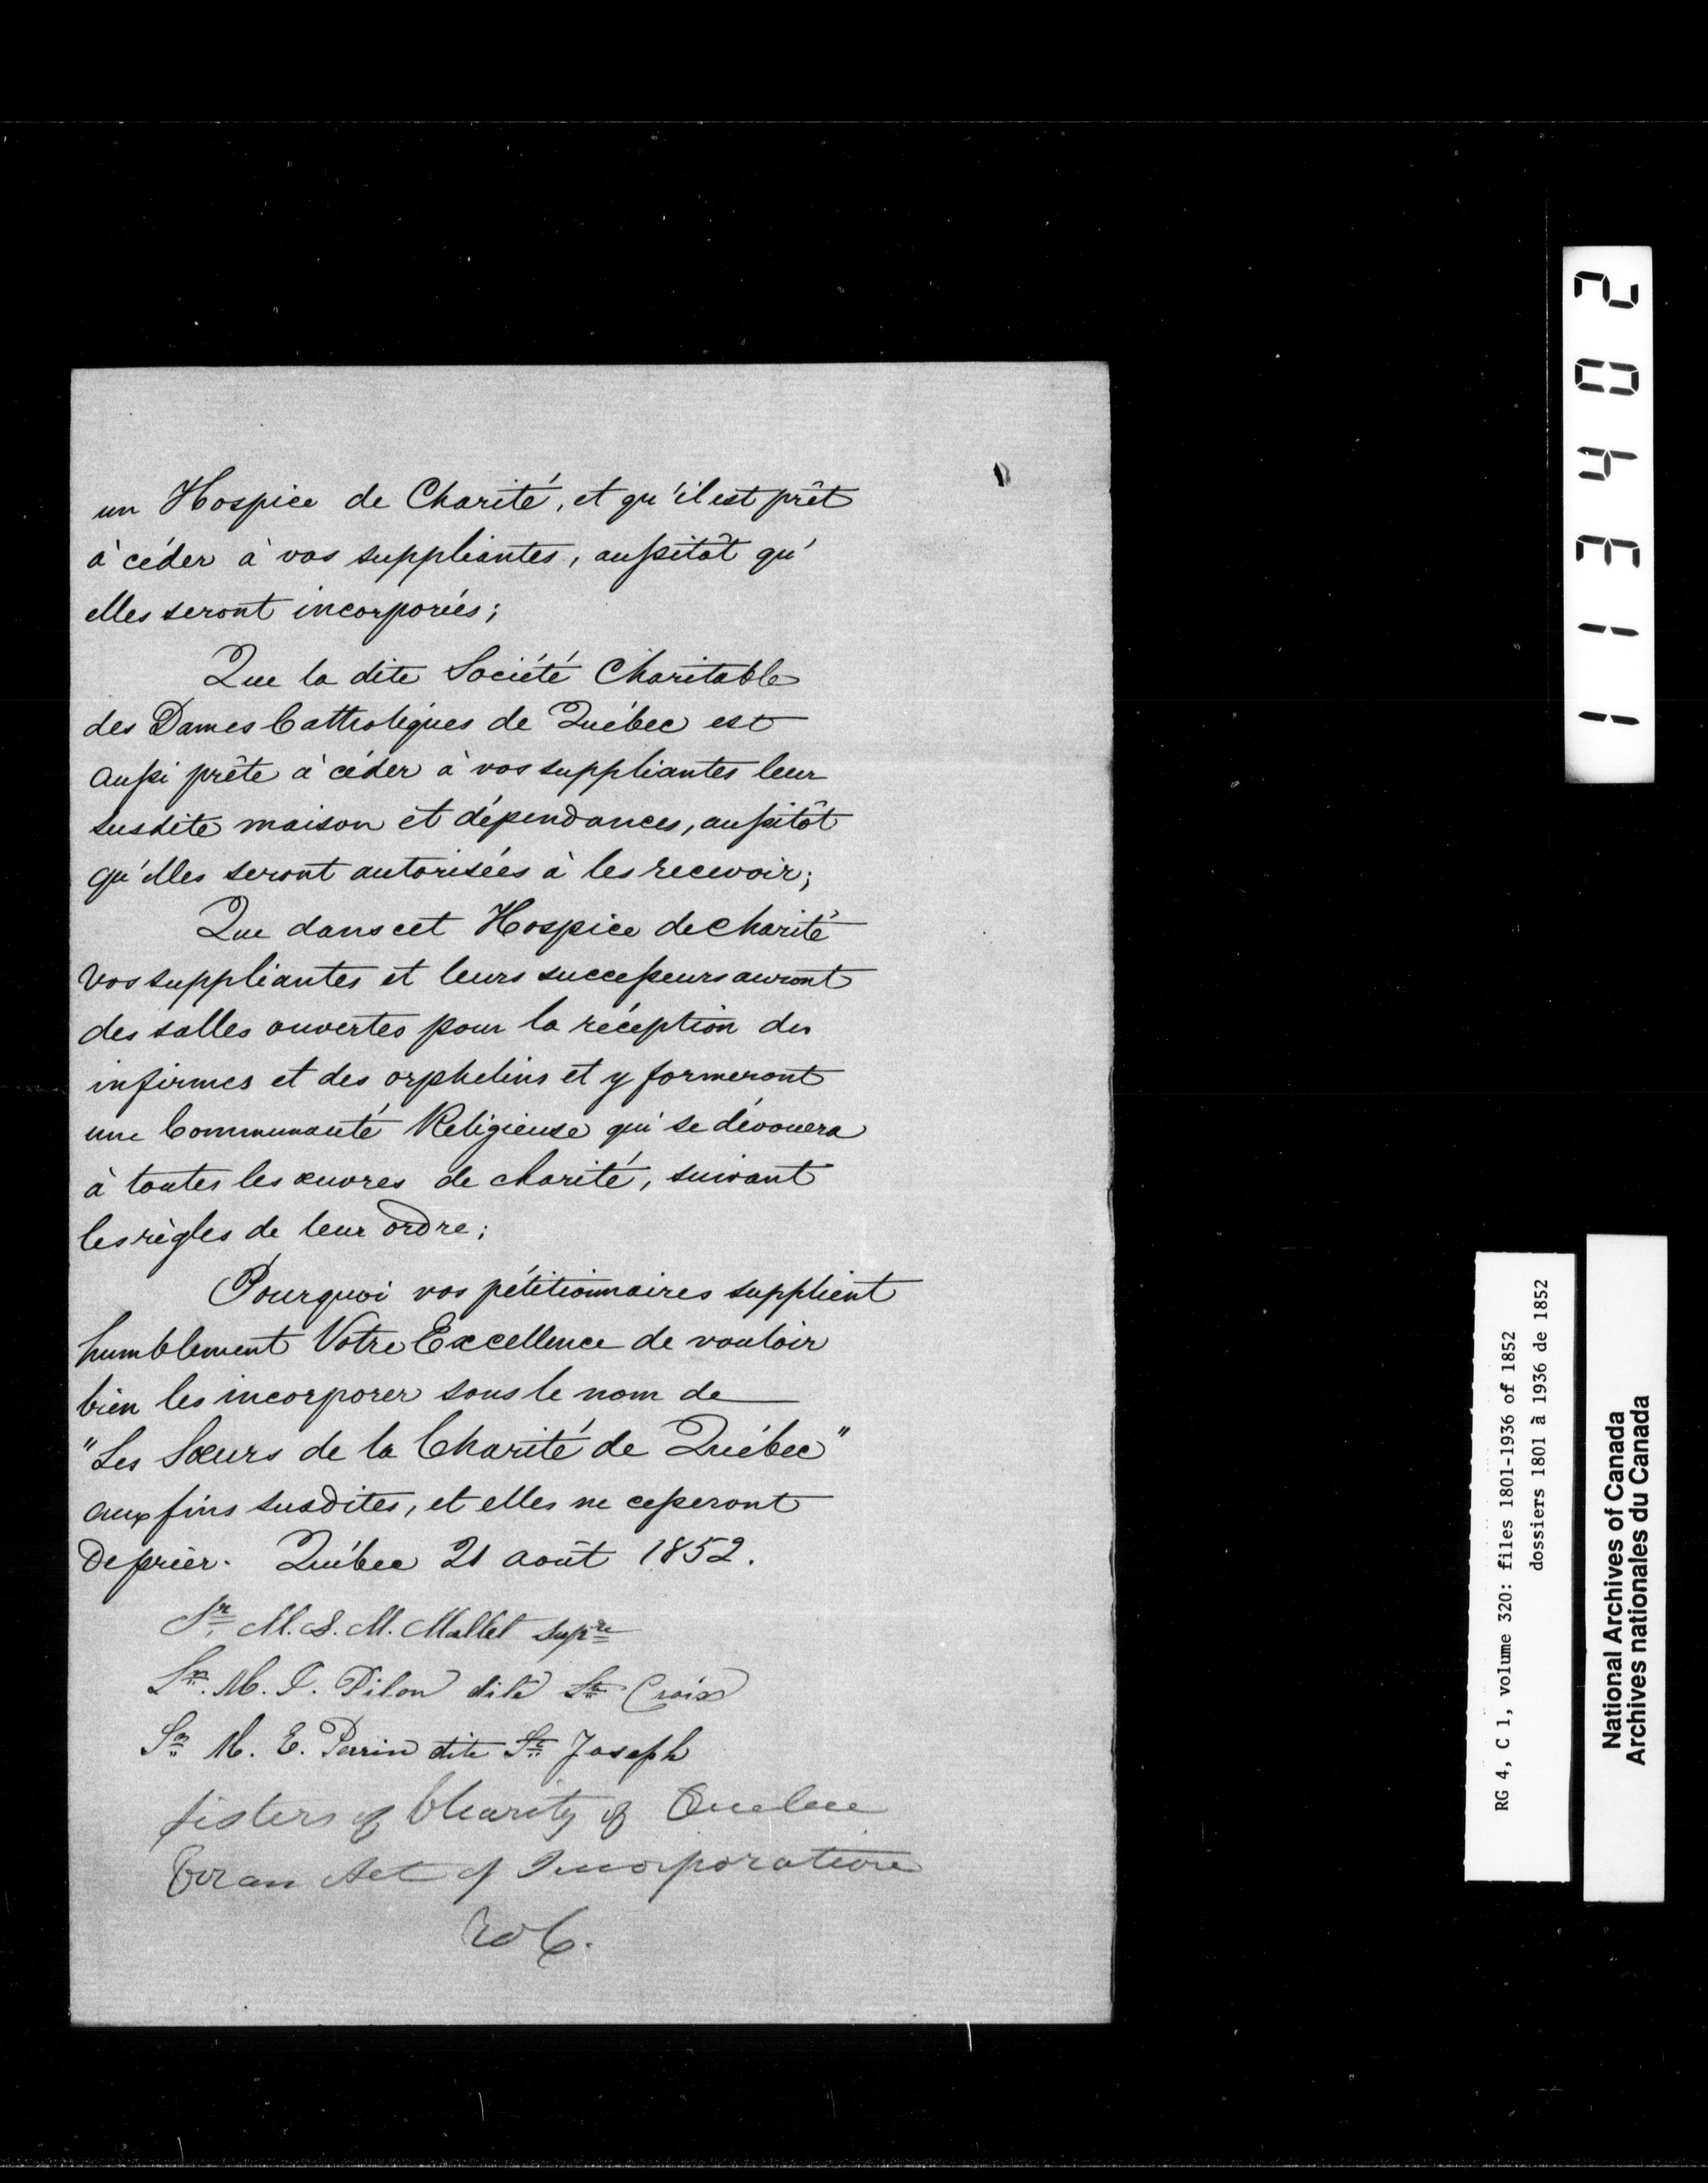 un Hospice de Charité, et qu'il est prêt
à céder à vos suppliantes, aussitôt qu'
elles seront incorporées;
Que la dite Société Charitable
des Dames Catholiques de Québec est
aussi prête à céder à vos suppliantes leur
susdite maison et dépendances, aussitôt
qu'elles seront autorisées à les recevoir;
Que dans cet Hospice de charité
vos suppliantes et leurs successeurs auront
des salles ouvertes pour la réception des
infirmes et des orphelins et y formeront
une Communauté Religieuse qui se dévouera
à toutes les œuvres de charité, suivant
les règles de leur ordre;
Pourquoi vos pétitionnaires supplient
humblement Votre Excellence de vouloir
bien les incorporer sous le nom de
"Les Sœurs de la Charité de Québec"
aux fins susdites, et elles ne cesseront
de prier. Québec 21 août 1852.
Sr M. S. M. Mallet supre
Sr. M. P. Pilon dite Ste Croix
Sr M. E. Perrin dite St Joseph
Sisters of Charity of Quebec
For an Act of Incorporation
113402
RG 4, C 1, volume 320: files 1801-1936 of 1852
dossiers 1801 à 1936 de 1852
National Archives of Canada
Archives nationales du Canada